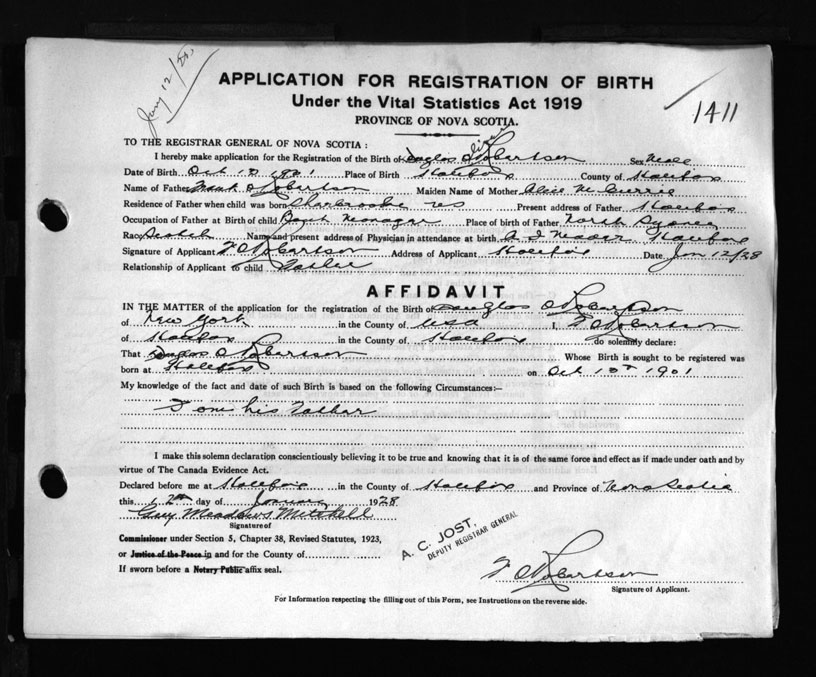 Jany 12/28
APPLICATION FOR REGISTRATION OF BIRTH
Under the Vital Statistics Act 1919
1411
PROVINCE OF NOVA SCOTIA.
TO THE REGISTRAR GENERAL OF NOVA SCOTIA :
I hereby make application for the Registration of the Birth of Douglas O Robertson Sex Male
Date of Birth Oct 10 1901 Place of Birth Halifax County of Halifax
Name of Father Frank O Robertson Maiden Name of Mother Alice McCurrie
Residence of Father when child was born Sherbrooke NS Present address of Father Halifax
Occupation of Father at Birth of child Bank Manager Place of Birth of Father North Sydney
Race Scotch Name and present address of Physician in attendance at birth A I Halifax
Signature of Applicant F O Robertson Address of Applicant Halifax Date Jan 12/28
Relationship of Applicant to child Father
AFFIDAVIT
IN THE MATTER of the application for the registration of the Birth of Douglas O Robertson
of New York in the County of USA I, F O Robertson
of Halifax in the County of Halifax do solemnly declare:
That Douglas O Robertson Whose Birth is sought to be registered was
born at Halifax on Oct 10th 1901
My knowledge of the fact and date of such Birth is based on the following Circumstances:-
I am his Father
I make this solemn declaration conscientiously believing it to be true and knowing that it is of the same force and effect as if made under oath and by
virtue of The Canada Evidence Act.
Declared before me at Halifax in the County of Halifax and Province of Nova Scotia
this 12th day of January 1928
Guy Meadows Mitchell
Signature of
Commissioner under Section 5, Chapter 38, Revised Statutes, 1923,
or Justice of the Peace in and for the County of
If sworn before a Notary Public affix seal.
A. C. JOST,
DEPUTY REGISTRAR GENERAL
F O Robertson
Signature of Applicant.
For Information respecting the filling out of this Form, see Instructions on the reverse side.